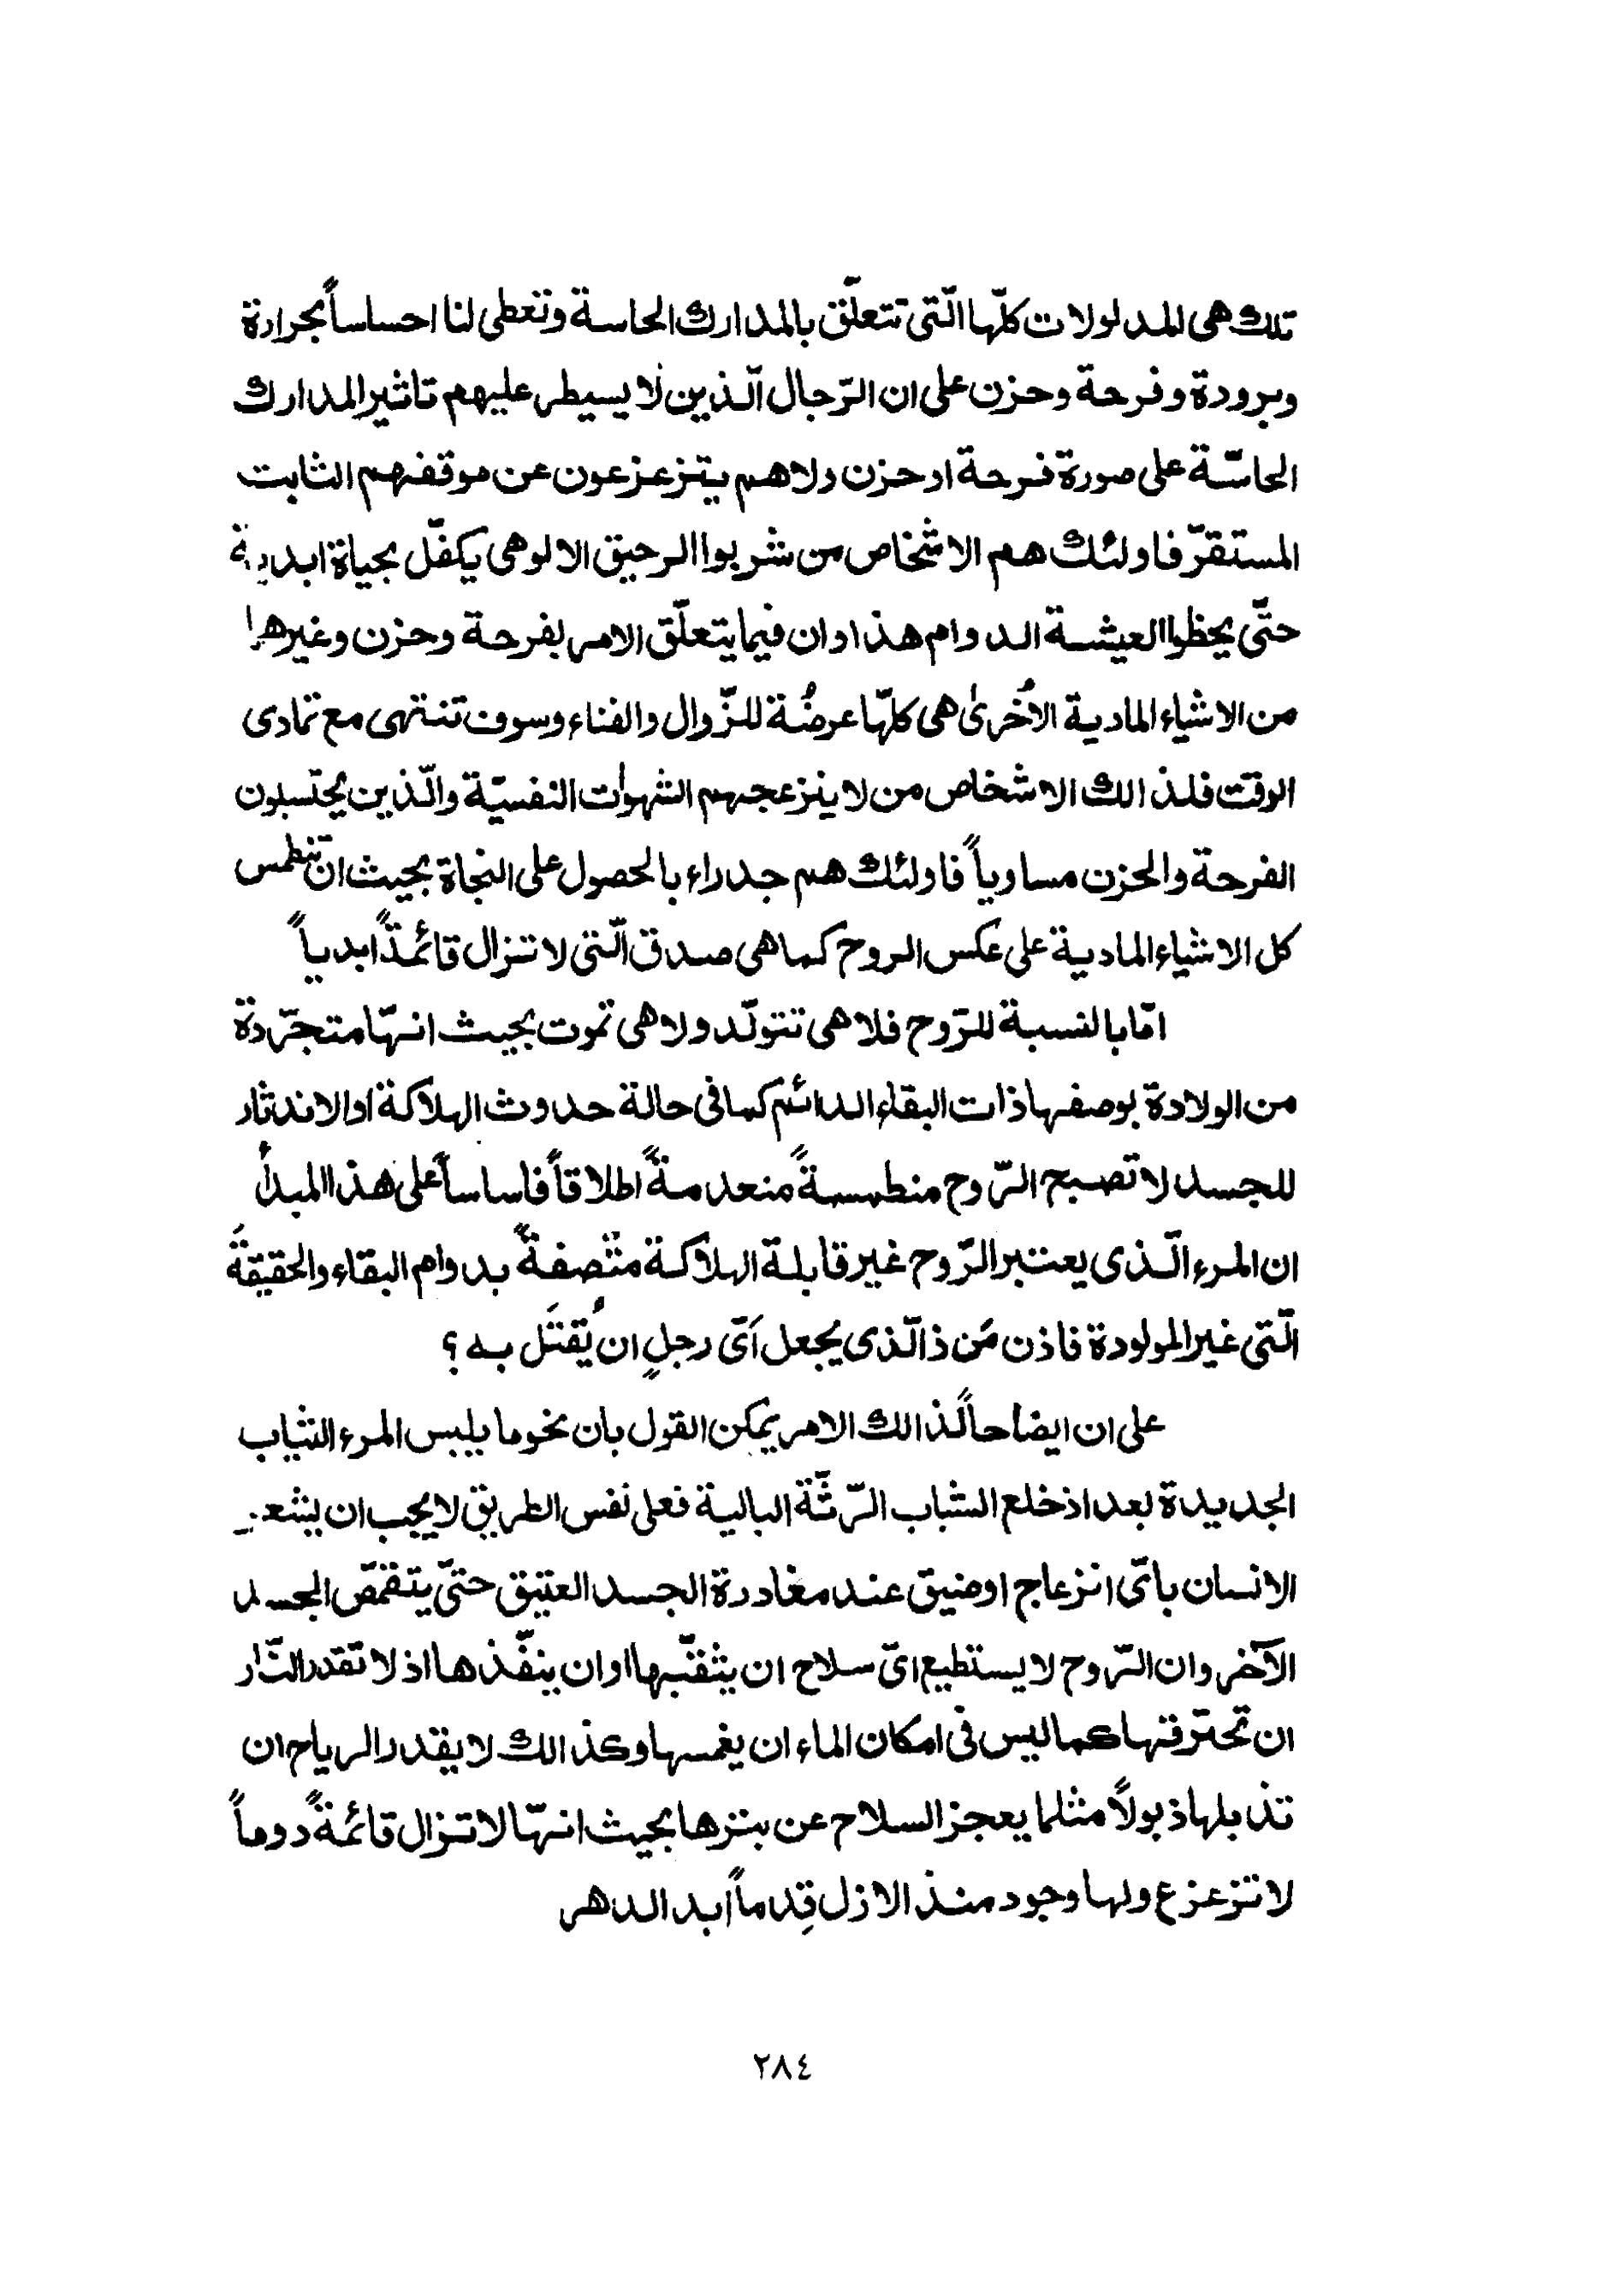 تلك هى المدلولات كلّها الّتى تتعلّق بالمدارك الحاسة وتعطى لنا احساساً بحرارة
وبرودة وفرحة وحزن على ان الرّجال الّذين لا يسيطر عليهم تاثير المدارك
الحاسّة على صورة فرحة او حزن ولاهم يتزعزعون عن موقفهم الثابت
المستقرّ فاولئك هم الاشخاص من شربوا الرحيق الالوهى يكفّل بحياة ابدية
حتّى يحظوا العيشة الدوام هذا وان فيما يتعلّق الامر بفرحة وحزن وغيرها
من الاشياء المادية الأخرىٰ هى كلّها عرضُة للزّوال والفناء وسوف تنتهى مع تمادى
الوقت فلذالك الاشخاص من لا ينزعجهم الشهوات النفسيّة والّذين يحتسبون
الفرحة والحزن مساوياً فاولئك هم جدراء بالحصول على النجاة بحيث ان تنطمس
كل الاشياء المادية على عكس الروح كما هى صدق الّتى لا تزال قائمةً ابدياً
امّا بالنسبة للرّوح فلا هى تتولّد ولا هى تموت بحيث انهّا متجرّدة
من الولادة بوصفها ذات البقاء الدائم كما فى حالة حدوث الهلاكة او الاندثار
للجسد لا تصبح الرّوح منطمسةً منعدمةً اطلاقاً فاساساً على هذا المبدأ
ان المرء الّذى يعتبر الرّوح غير قابلة الهلاكة متّصفةً بدوام البقاء والحقيقةَ
الّتى غير المولودة فاذن مَن ذا الّذى يجعل اَىّ رجلٍ ان يُقتَل به ؟
على ان ايضاحاً لذالك الامر يمكن القول بان نحوما يلبس المرء الثياب
الجديدة بعد اذ خلع الشباب الرّثّة البالية فعلى نفس الطريق لا يجب ان يشعر
الانسان باىّ انزعاج او ضيق عند مغادرة الجسد العتيق حتىّ يتقمّص الجسد
الآخر وان الرّوح لا يستطيع اىّ سلاح ان يثقّبها او ان ينفّذها اذ لا تقدر النّار
ان تحترقها كما ليس فى امكان الماء ان يغمسها وكذالك لا يقدر الرياح ان
تذبلها ذبولاً مثلما يعجز السلاح عن بتزها بحيث انهّا لا تزال قائمةً دوماً
لا تزعزع ولها وجود منذ الازل قِدماً ابد الدهر
٢٨٤